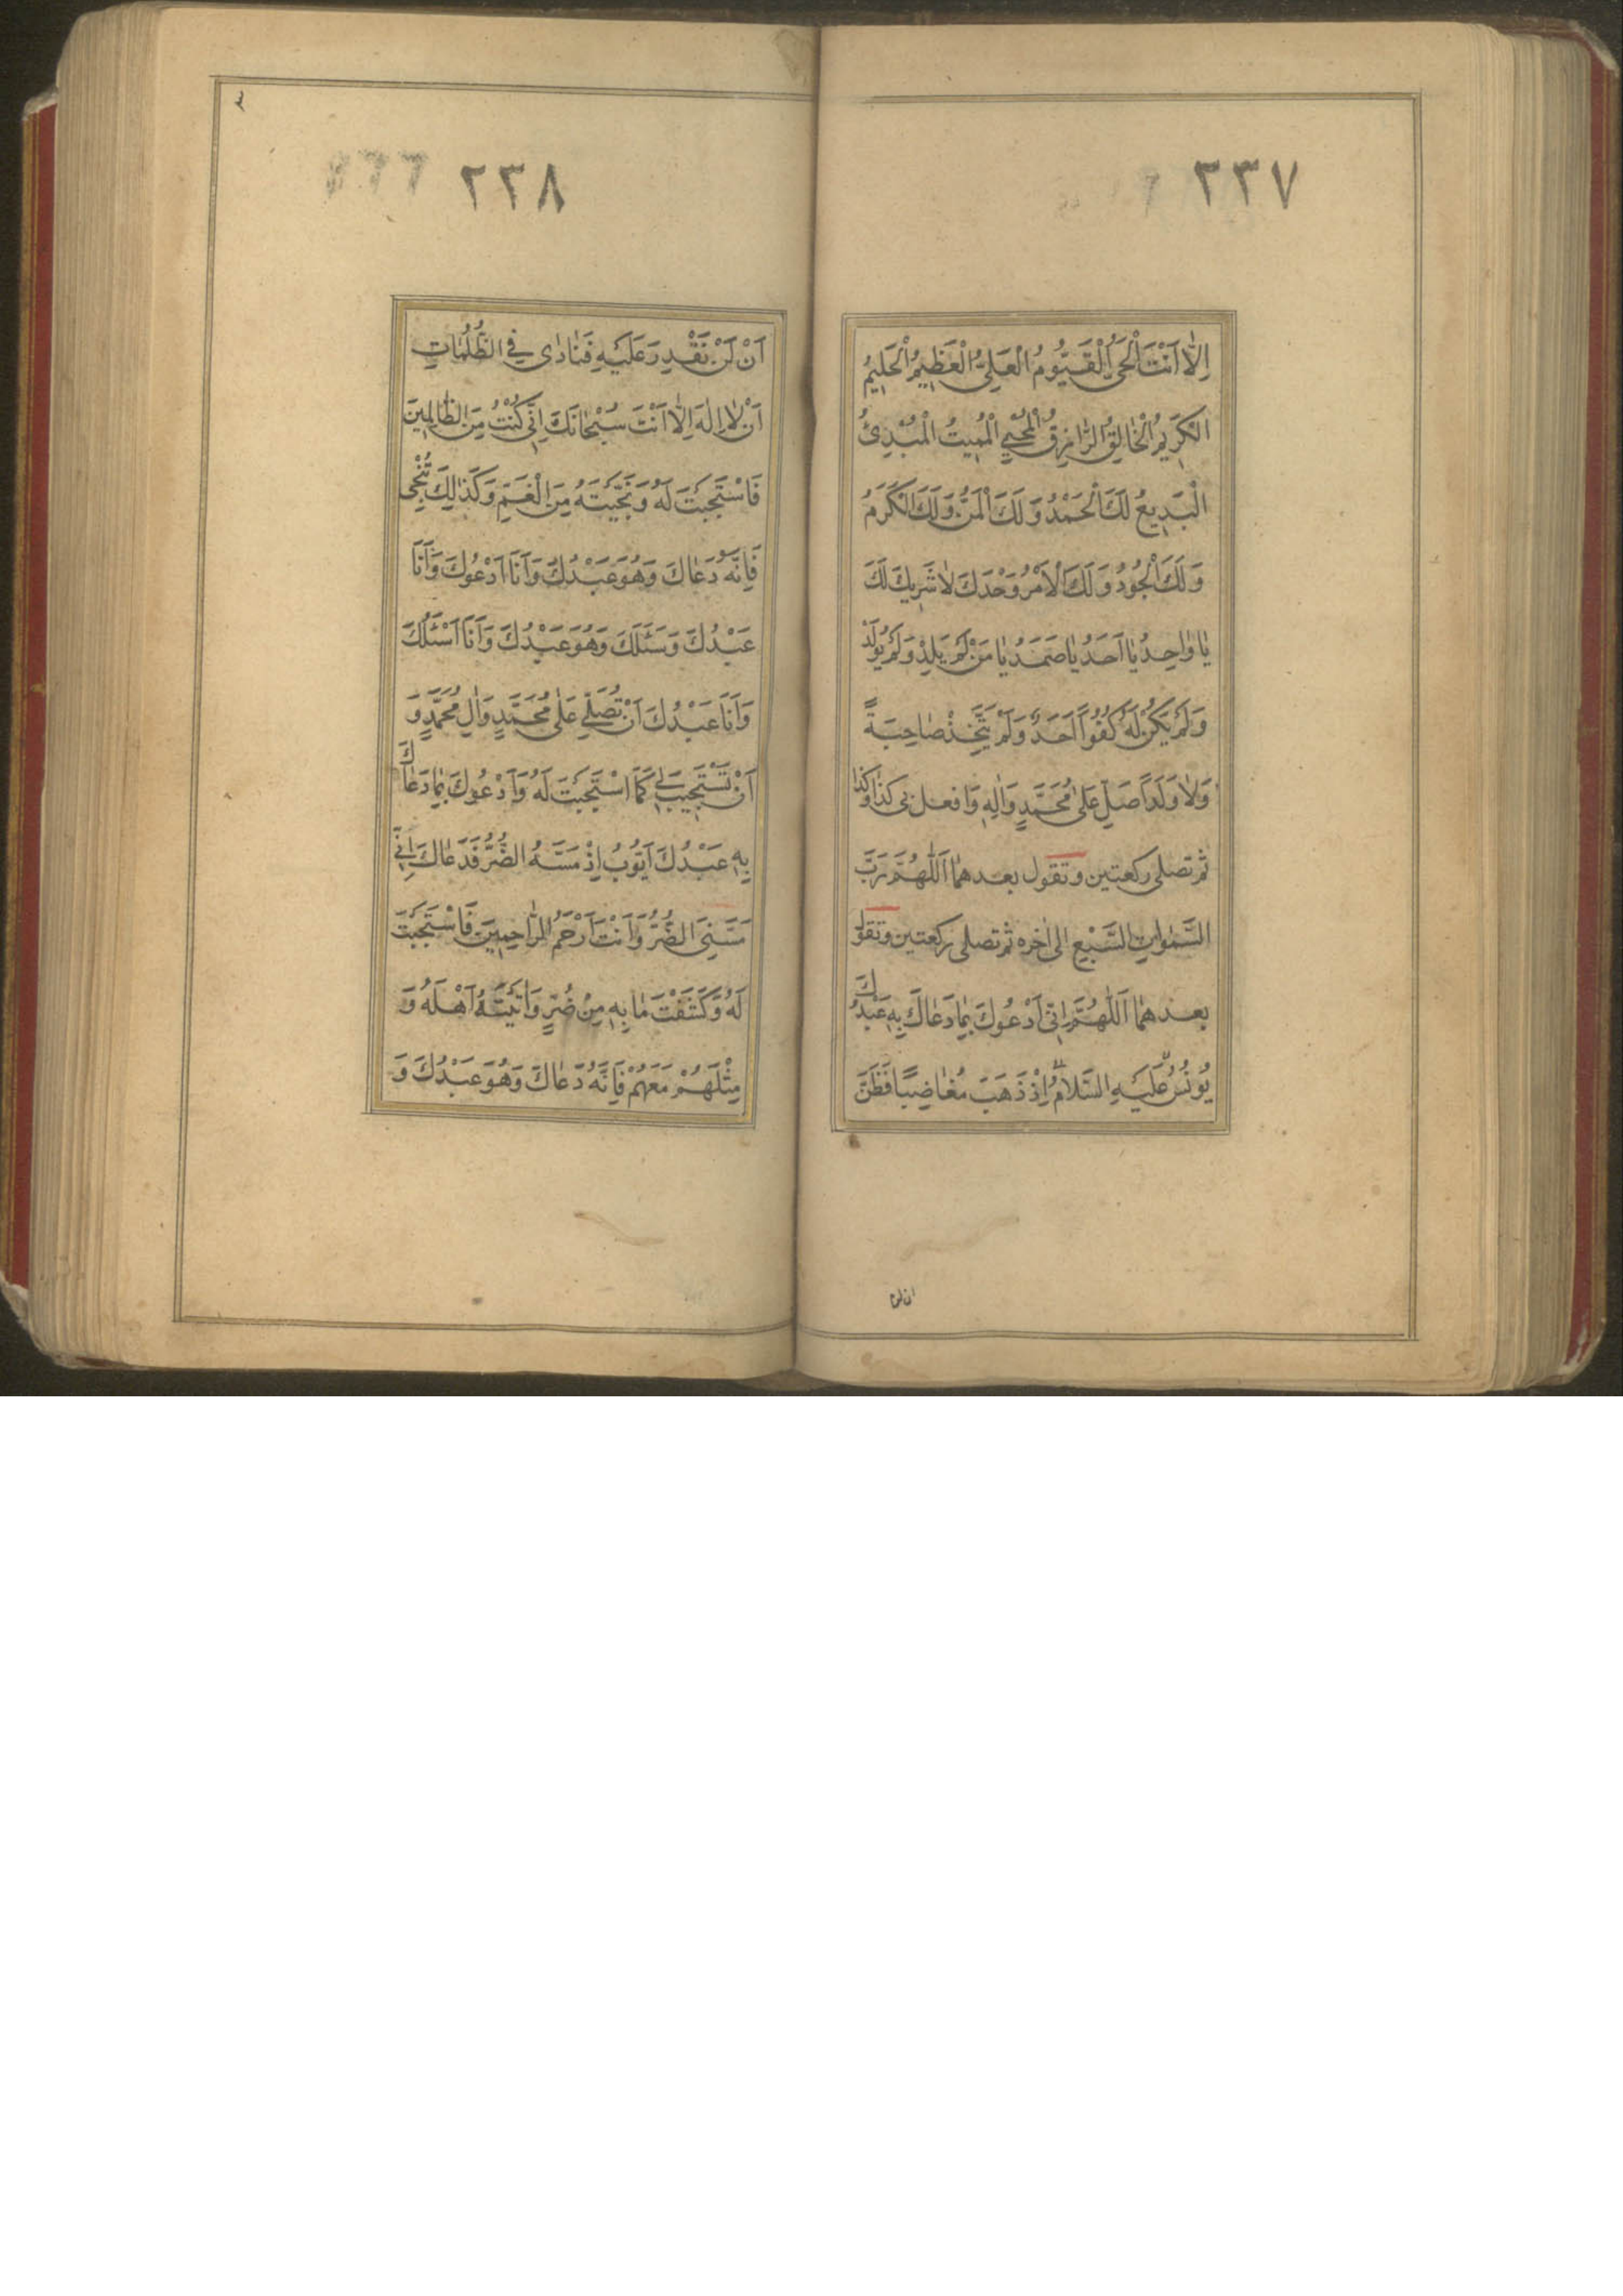 ٢٣٧
اِلّٰا اَنْتَ الْحَىُّ الْقَيُّومُ الْعَلِىُّ الْعَظِيمُ الْحَلِيمُ
الْكَرِيمُ الْخٰالِقُ الرّٰازِقُ الْمُحْيِي الْمُمِيتُ الْمُبْدِئُ
الْبَدِيعُ لَكَ الْحَمْدُ وَلَكَ الْمَنُّ وَلَكَ الْكَرَمُ
وَلَكَ الْجُودُ وَلَكَ الْاَمْرُ وَحْدَكَ لٰا شَرِيكَ لَكَ
يٰا وٰاحِدُ يٰا اَحَدُ يٰا صَمَدُ يٰا مَنْ لَمْ يَلِدْ وَلَمْ يُولَدْ
وَلَمْ يَكُنْ لَهُ كُفُوًا اَحَدٌ وَلَمْ يَتَّخِذْ صٰاحِبَةً
وَلٰا وَلَدًا صَلِّ عَلىٰ مُحَمَّدٍ وَاٰلِهِ وَافعل بى كذا وكذا
ثم تصلى ركعتين وتقول بعدهما اَللّٰهُمَّ رَبَّ
السَّمٰوٰاتِ السَّبْعِ الى اخره ثم تصلى ركعتين وتقول
بعدهما اَللّٰهُمَّ اِنّى اَدْعُوكَ بِمٰا دَعٰاكَ بِهِ عَبْدُكَ
يُونُسُ عَلَيْهِ السَّلٰامُ اِذْ ذَهَبَ مُغٰاضِبًا فَظَنَّ
ان لن
٢٣٨
اَنْ لَنْ نَقْدِرَ عَلَيْهِ فَنٰادٰى فِي الظُّلُمٰاتِ
اَنْ لٰا اِلٰهَ اِلّٰا اَنْتَ سُبْحٰانَكَ اِنّى كُنْتُ مِنَ الظّٰالِمِينَ
فَاسْتَجَبْتَ لَهُ وَنَجَّيْتَهُ مِنَ الْغَمِّ وَكَذٰلِكَ تُنْجِى
فَاِنَّهُ دَعٰاكَ وَهُوَ عَبْدُكَ وَاَنَا اَدْعُوكَ وَاَنَا
عَبْدُكَ وَسَئَلَكَ وَهُوَ عَبْدُكَ وَاَنَا اَسْئَلُكَ
وَاَنَا عَبْدُكَ اَنْ تُصَلِّيَ عَلىٰ مُحَمَّدٍ وَاٰلِ مُحَمَّدٍ وَ
اَنْ تَسْتَجِيبَ لِي كَمَا اسْتَجَبْتَ لَهُ وَاَدْعُوكَ بِمٰا دَعٰاكَ
بِهِ عَبْدُكَ اَيُّوبُ اِذْ مَسَّهُ الضُّرُّ فَدَعٰاكَ اِنّي
مَسَّنِيَ الضُّرُّ وَاَنْتَ اَرْحَمُ الرّٰاحِمِينَ فَاسْتَجَبْتَ
لَهُ وَكَشَفْتَ مٰا بِهِ مِنْ ضُرٍّ وَاٰتَيْتَهُ اَهْلَهُ وَ
مِثْلَهُمْ مَعَهُمْ فَاِنَّهُ دَعٰاكَ وَهُوَ عَبْدُكَ وَ